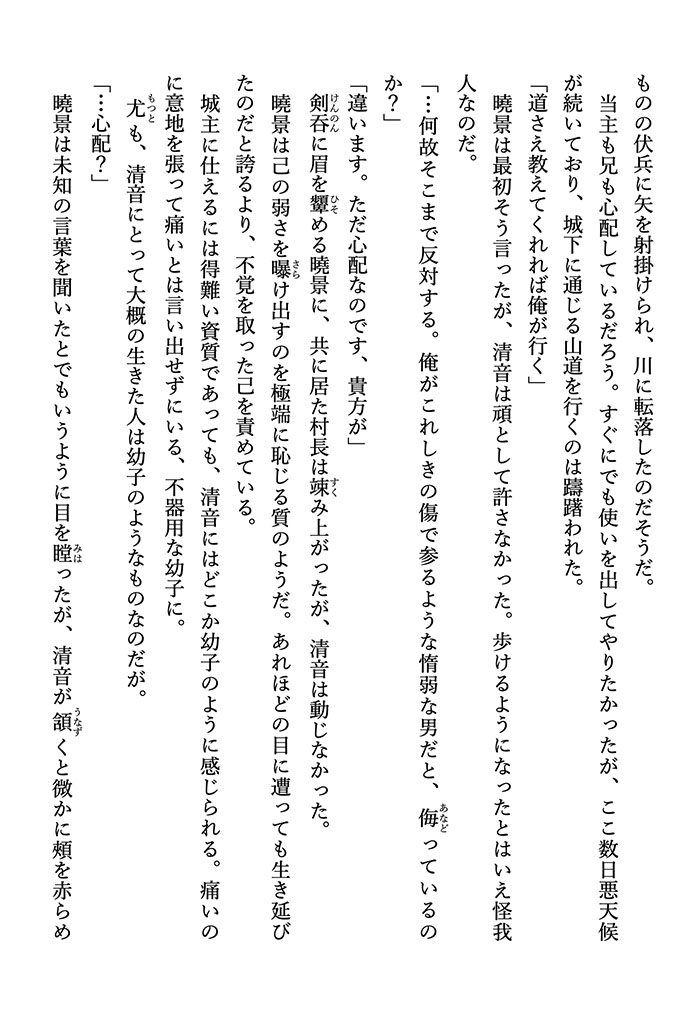 ものの伏兵に矢を射掛けられ、川に転落したのだそうだ。
当主も兄も心配しているだろう。すぐにでも使いを出してやりたかったが、ここ数日悪天候
が続いており、城下に通じる山道を行くのは躊躇われた。
「道さえ教えてくれれば俺が行く」
曉景は最初そう言ったが、清音は頑として許さなかった。歩けるようになったとはいえ怪我
人なのだ。
「…何故そこまで反対する。俺がこれしきの傷で参るような惰弱な男だと、侮っているの
か？」
「違います。ただ心配なのです、貴方が」
剣呑に眉を顰める曉景に、共に居た村長は竦み上がったが、清音は動じなかった。
曉景は己の弱さを曝け出すのを極端に恥じる質のようだ。あれほどの目に遭っても生き延び
たのだと誇るより、不覚を取った己を責めている。
城主に仕えるには得難い資質であっても、清音にはどこか幼子のように感じられる。痛いの
に意地を張って痛いとは言い出せずにいる、不器用な幼子に。
尤も、清音にとって大概の生きた人は幼子のようなものなのだが。
「…心配？」
曉景は未知の言葉を聞いたとでもいうように目を瞠ったが、清音が頷くと微かに頰を赤らめ